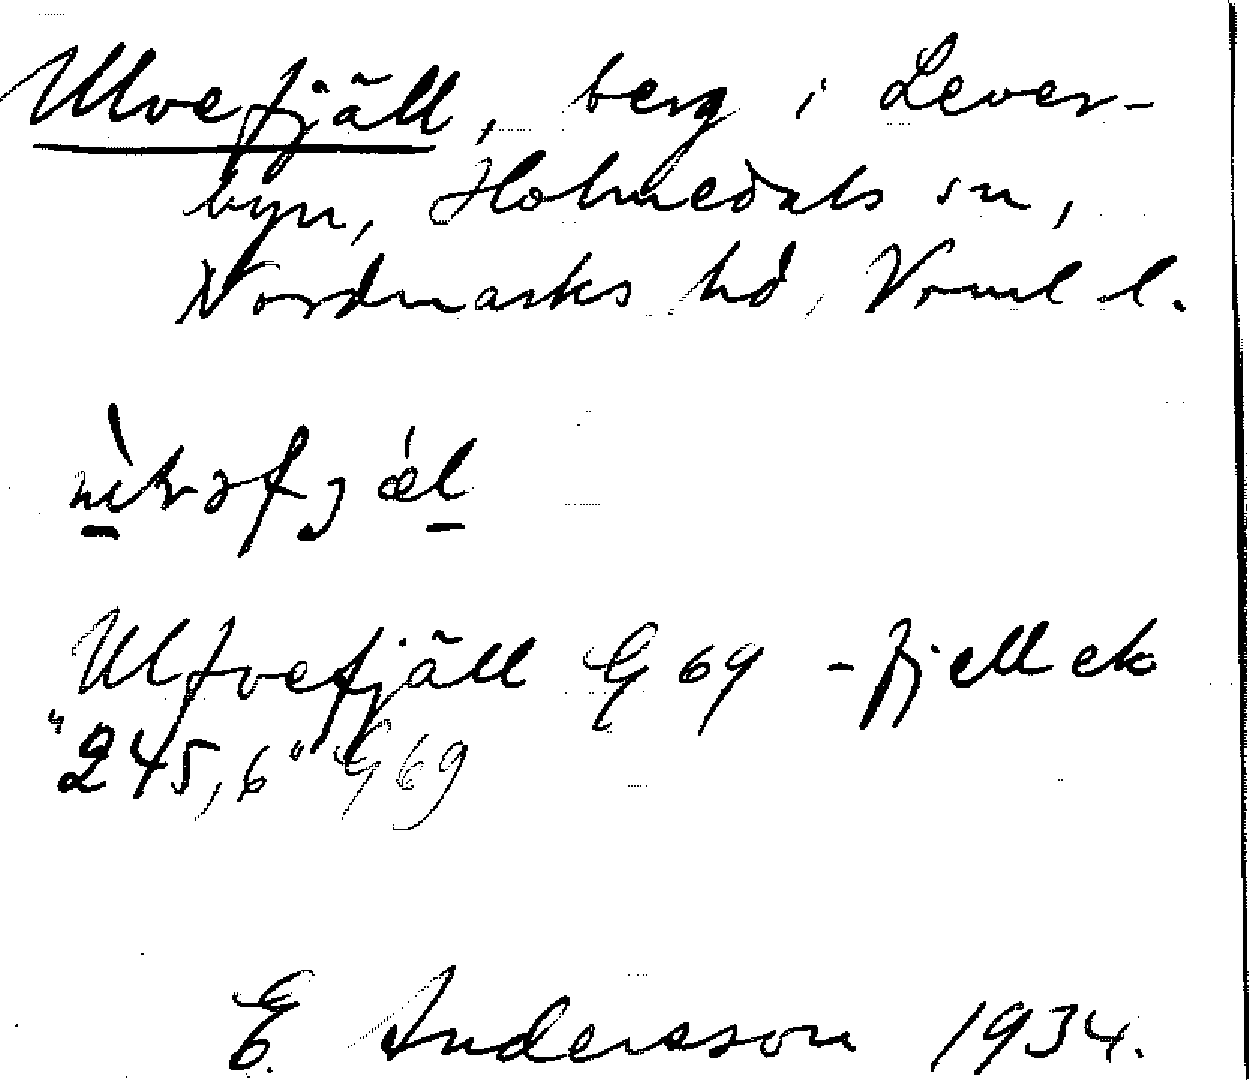 Ulvefjäll, berg i Lever-
byn, Holmedals sn,
Nordmarks hd, Vrml l.
Ulfvefjäll G 69 - fjell ek
"245,6" G 69
E. Andersson 1934.